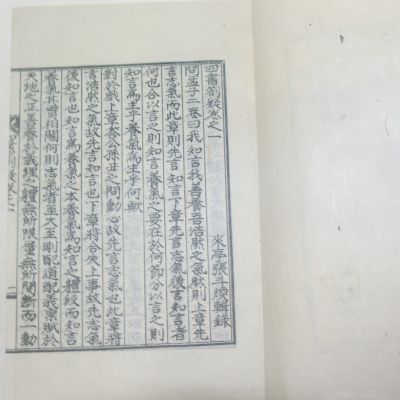 四書箚疑卷之一
來亭張斗煥輯錄
問孟子二卷曰我知言我善養吾浩然之氣則上章先
言志氣而此章則先言知言下章先言志氣後言知言者
何也合以言之則知言養氣之要在於何節分以言之則
知言爲主乎養氣爲主乎
對於戱上章公孫丑之問動心故先言志氣也此章將
言浩然之氣故先言知言也下章將合失上事故先志氣
後知言也知言爲養氣之本養氣爲知言之體紋而知言
養氣其實相關何則志氣者至大至剛配道配義稟賦於
天地之正善養於義理之體無所限量無所間斷而一動